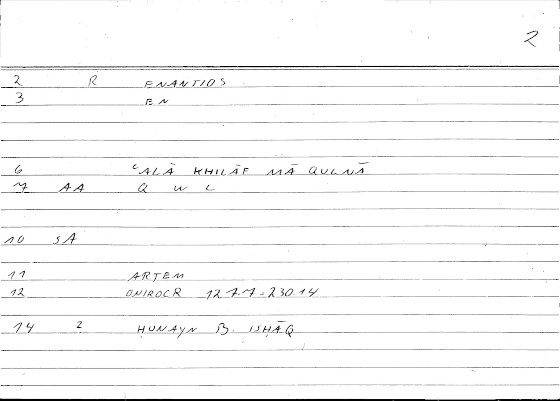 2
2 R ENANTIOS
3 EN
6 ʿALĀ KHILĀF MĀ QULNĀ
7 AA Q W L
10 SA
11 ARTEM
12 ONIROCR 127.7=230.14
14 2 ḤUNAYN B. ISḤĀQ